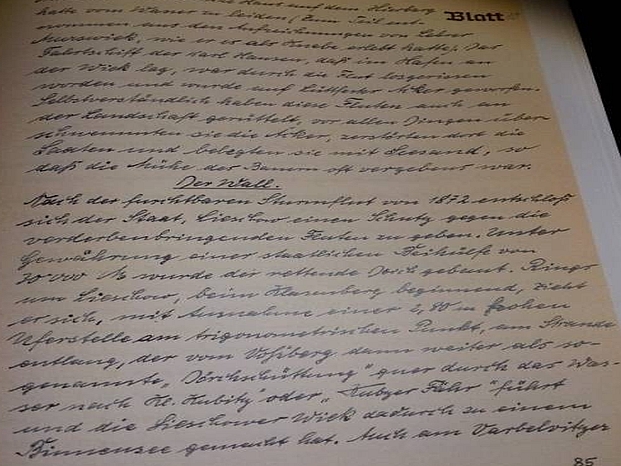 Blatt
hatte vom Wasser zu leiden (Zum Teil ent-
nommen aus den Aufzeichnungen von Lehrer
wie er es als Knabe erlebt hatte). Das
Fahrtschiff der Karl Hansen, daß im Hafen an
der Wiek lag, war durch die Flut losgerissen
worden und wurde auf Acker geworfen.
Selbstverständlich haben diese Fluten auch an
der Landschaft gerüttelt, vor allen Dingen über
schwemmten sie die Äcker, zerstörten dort die
Saaten und belegten sie mit Seesand, so
daß die Mühe der Bauern oft vergebens war.
Der Wall.
Nach der furchtbaren Sturmflut von 1872 entschloß
sich der Staat, Lieschow einen Schutz gegen die
verderbenbringenden Fluten zu geben. Unter
Gewährung einer staatlichen Beihülfe von
70 000 M wurde der rettende Deich gebaut. Rings
um Lieschow, beim beginnend, zieht
er sich, mit Ausnahme einer 2,80 m hohen
Uferstelle am trigonometrischen Punkt, am Strande
entlang, der vom Voßberg dann weiter als so-
genannte „Dörchschüttung" quer durch das Was-
ser nach Kl. Kubitz oder „Kubzer Fähr" führt
und die Lieschower Wiek dadurch zu einem
Binnensee gemacht hat. Auch am Varbelvitzer
85